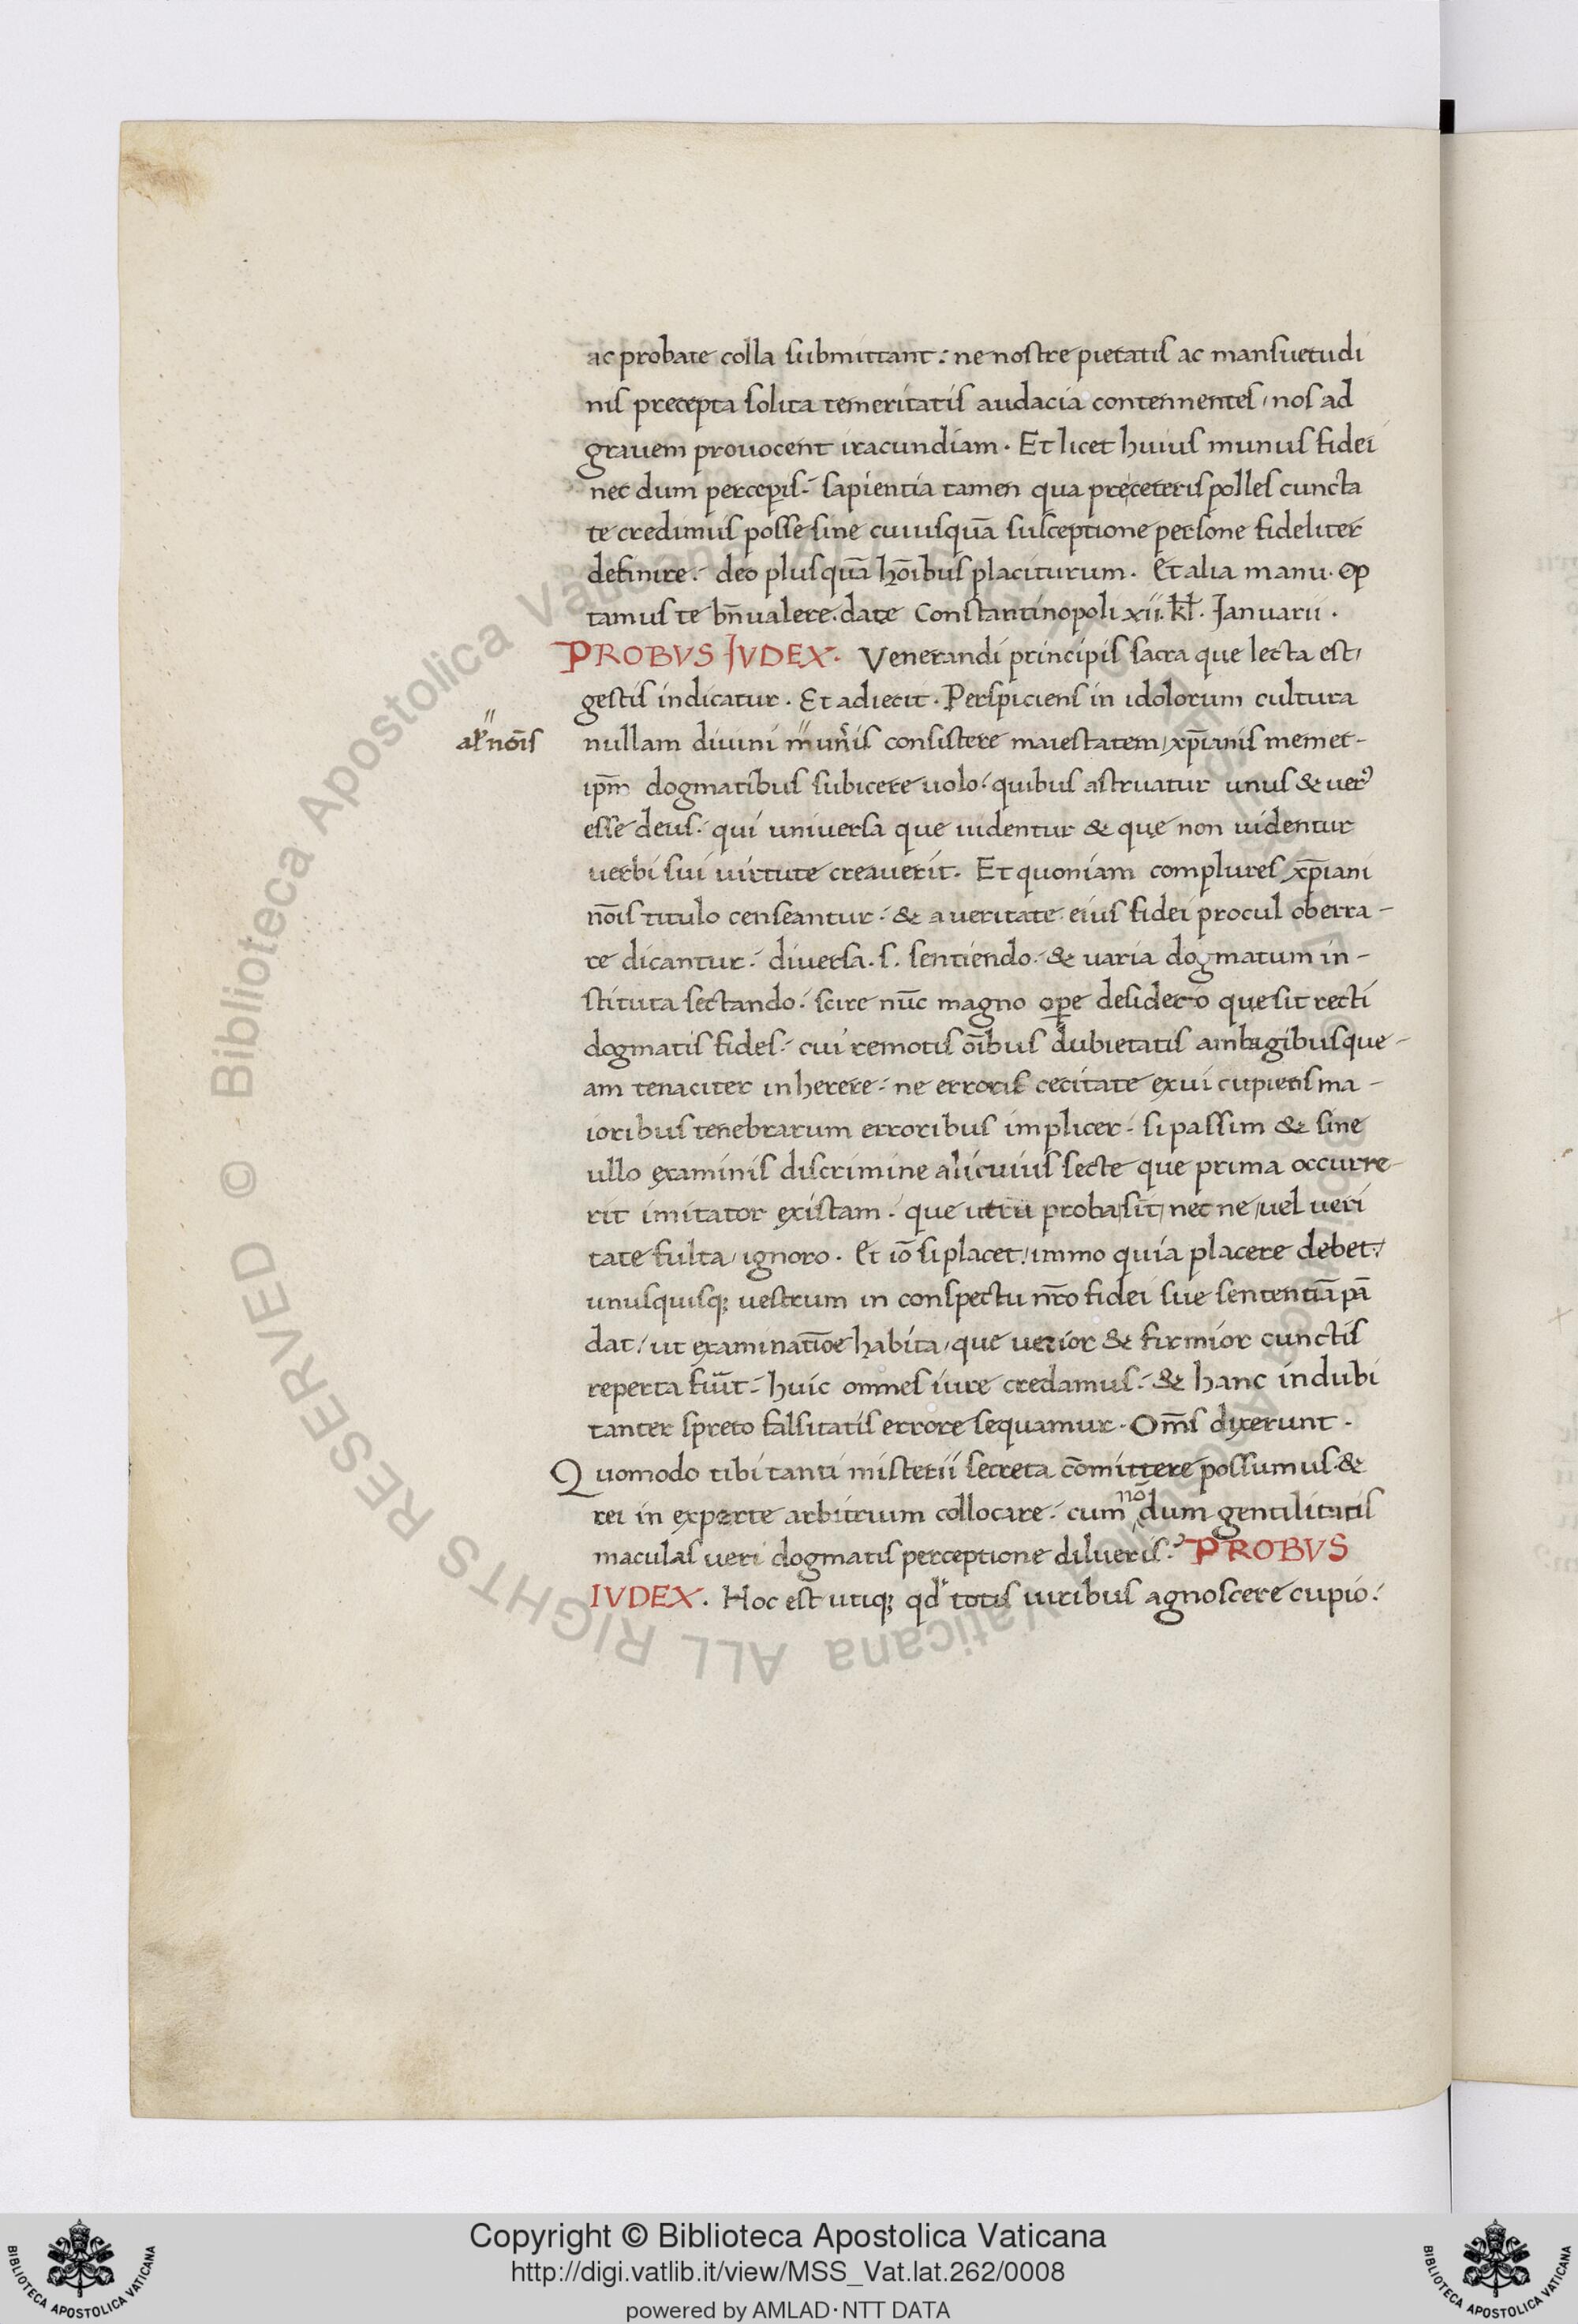 ac probate colla submittant: ne nostre pietatis ac mansuetudi
nis precepta solita temeritatis audacia contennentes, nos ad
gravem provocent iracundiam. Et licet huius munus fidei
nec dum percepis: sapientia tamen qua pręceteris polles cuncta
te credimus posse sine cuiusquā susceptione persone fideliter
definire: deo plusquā hōibus placiturum. Et alia manu. Op
tamus te bn̄ valere. date Constantinopoli xii. kl. Januarii.
PROBVS JVDEX. Venerandi principis sacra que lecta est,
gestis indicatur. Et adiecit. Perspiciens in idolorum cultura
al' nōis
nullam divini mun̄is consistere maiestatem, xp̄ianis memet-
ipm̄ dogmatibus subicere volo: quibus astruatur unus & verꝰ
esse deus. qui universa que videntur & que non videntur
verbi sui virtute creaverit. Et quoniam complures xp̄iani
nōis titulo censeantur: & a veritate eius fidei procul oberra-
re dicantur: diversa .s. sentiendo: & varia dogmatum in-
stituta sectando: scire nūc magno ope desidero que sit recti
dogmatis fides: cui remotis oībus dubietatis ambagibus que-
am tenaciter inherere: ne erroris cecitate exui cupiens ma-
ioribus tenebrarum erroribus implicer: si passim & sine
ullo examinis discrimine alicuius secte que prima occurre-
rit imitator existam. que utrū proba sit, nec ne, vel veri
tate fulta, ignoro. Et iō si placet, immo quia placere debet,
unusquisq; vestrum in conspectu nr̄o fidei sue sententiā pā
dat, ut examinatiōe habita, que verior & firmior cunctis
reperta fūit: huic omnes iure credamus: & hanc indubi
tanter spreto falsitatis errore sequamur. Om̄s dixerunt.
Quomodo tibi tanti misterii secreta cōmittere possumus. &
rei in experte arbitrium collocare: cum nō dum gentilitatis
maculas veri dogmatis perceptione dilueris? PROBVS
IVDEX. Hoc est utiq; qd' totis viribus agnoscere cupio:
Copyright © Biblioteca Apostolica Vaticana
http://digi.vatlib.it/view/MSS_Vat.lat.262/0008
powered by AMLAD·NTT DATA
BIBLIOTECA APOSTOLICA VATICANA
BIBLIOTECA APOSTOLICA VATICANA
© Biblioteca Apostolica Vaticana ALL RIGHTS RESERVED